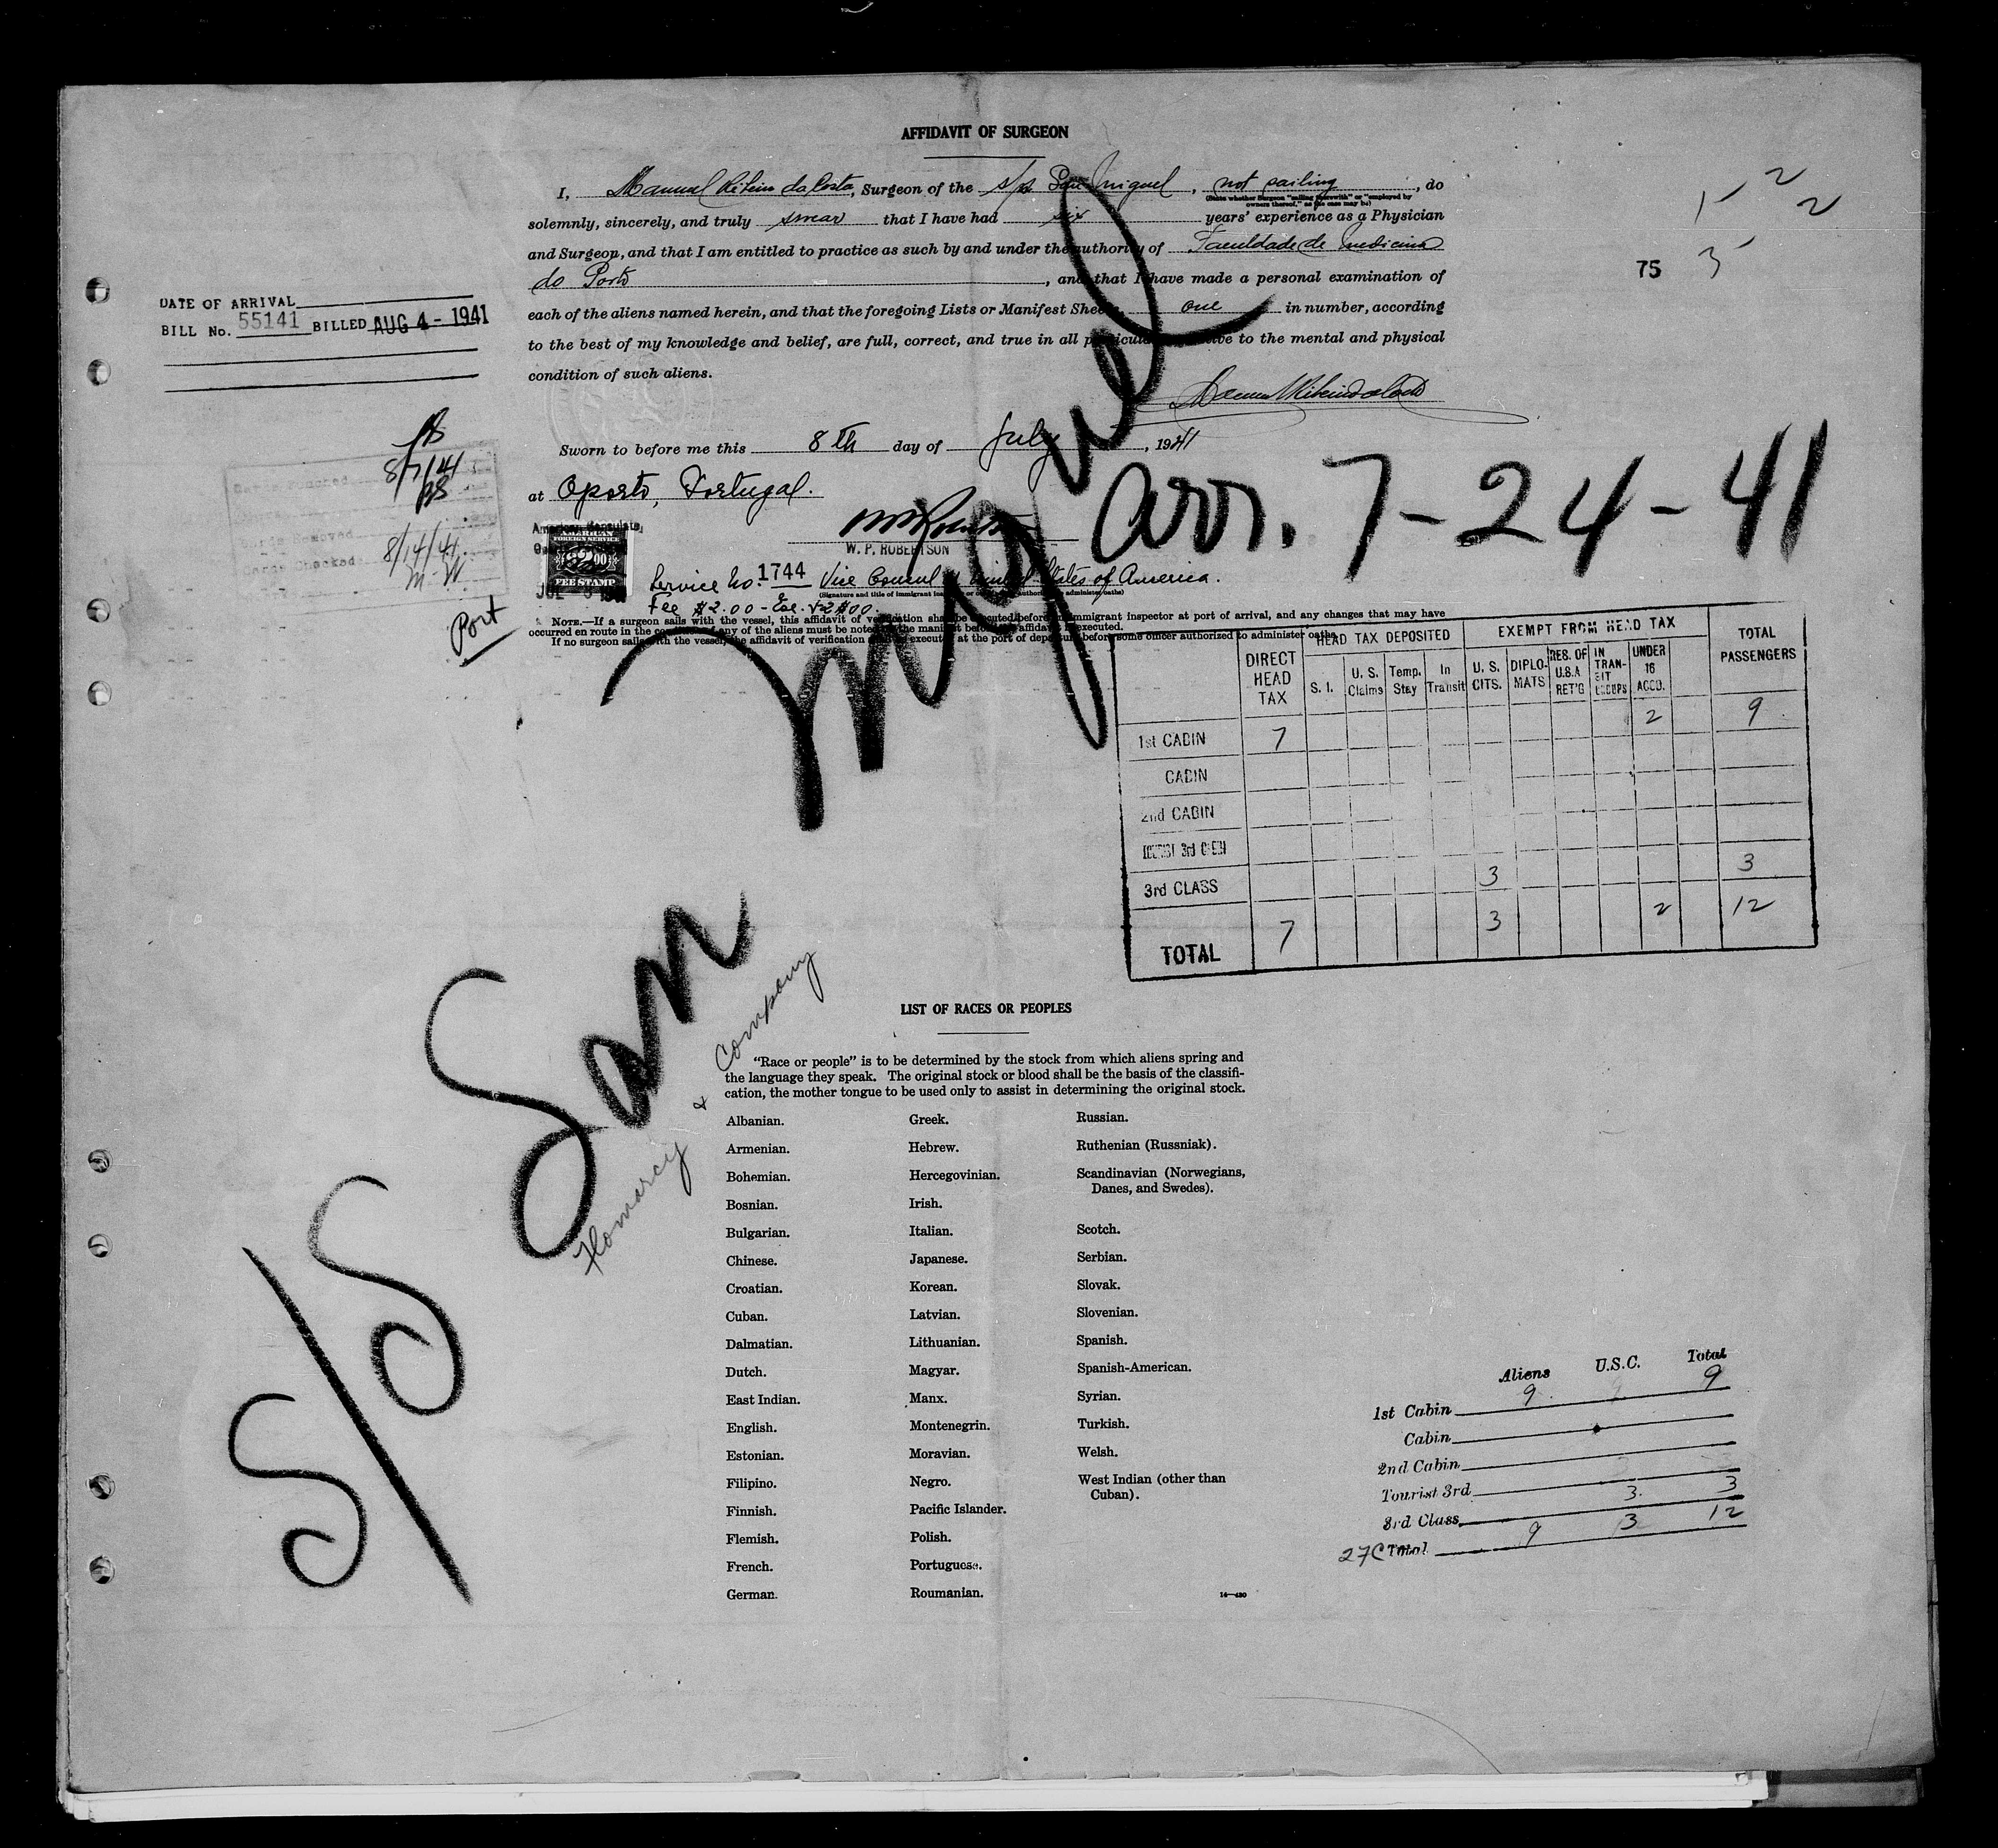 AFFIDAVIT OF SURGEON
I, Manuel Ribeiro da Costa, Surgeon of the s/s San Miguel, not sailing, do
(State whether Surgeon "sailing therewith" or "employed by
owners thereof," as the case may be)
solemnly, sincerely, and truly swear that I have had six years' experience as a Physician
and Surgeon, and that I am entitled to practice as such by and under the authority of Faculdade de Medicina
do Porto, and that I have made a personal examination of
each of the aliens named herein, and that the foregoing Lists or Manifest Sheets, one in number, according
to the best of my knowledge and belief, are full, correct, and true in all particulars relative to the mental and physical
condition of such aliens.
Manuel Ribeiro da Costa
Sworn to before me this 8th day of July, 1941
at Oporto, Portugal.
W. P. ROBERTSON
Service No. 1744 Vice Consul of United States of America.
(Signature and title of immigrant inspector or other authorized to administer oaths)
Fee $2.00
AMERICAN
FOREIGN SERVICE
$2.00
FEE STAMP
NOTE.—If a surgeon sails with the vessel, this affidavit of verification shall be executed before an immigrant inspector at port of arrival, and any changes that may have
occurred en route in the condition of any of the aliens must be noted on the manifest before the affidavit is executed.
If no surgeon sails with the vessel, the affidavit of verification shall be executed at the port of departure before some officer authorized to administer oaths.
DATE OF ARRIVAL
BILL No. 55141 BILLED AUG 4 - 1941
8/7/41
Cards Removed
Cards Checked
8/14/41
M.W.
Port
1 2
2
75 3
S/S San Miguel arr. 7-24-41
& Company
HEAD TAX DEPOSITED EXEMPT FROM HEAD TAX
DIRECT HEAD TAX S. I. U. S. Claims Temp. Stay In Transit U. S. CITS. DIPLO-MATS RES. OF U.S.A RET'G IN TRAN-SIT GROUPS UNDER 16 ACCO. TOTAL PASSENGERS
1st CABIN 7 2 9
CABIN
2nd CABIN
TOURIST 3rd CABIN
3rd CLASS 3 3
TOTAL 7 3 2 12
LIST OF RACES OR PEOPLES
"Race or people" is to be determined by the stock from which aliens spring and
the language they speak. The original stock or blood shall be the basis of the classifi-
cation, the mother tongue to be used only to assist in determining the original stock.
Albanian.
Armenian.
Bohemian.
Bosnian.
Bulgarian.
Chinese.
Croatian.
Cuban.
Dalmatian.
Dutch.
East Indian.
English.
Estonian.
Filipino.
Finnish.
Flemish.
French.
German.
Greek.
Hebrew.
Hercegovinian.
Irish.
Italian.
Japanese.
Korean.
Latvian.
Lithuanian.
Magyar.
Manx.
Montenegrin.
Moravian.
Negro.
Pacific Islander.
Polish.
Portuguese.
Roumanian.
Russian.
Ruthenian (Russniak).
Scandinavian (Norwegians,
Danes, and Swedes).
Scotch.
Serbian.
Slovak.
Slovenian.
Spanish.
Spanish-American.
Syrian.
Turkish.
Welsh.
West Indian (other than
Cuban).
Aliens U.S.C. Total
1st Cabin 9 9
Cabin
2nd Cabin
Tourist 3rd
3rd Class 3 3
Total 9 3 12